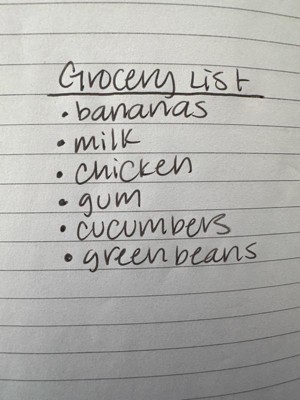 Grocery List
• bananas
• milk
• chicken
• gum
• cucumbers
• green beans